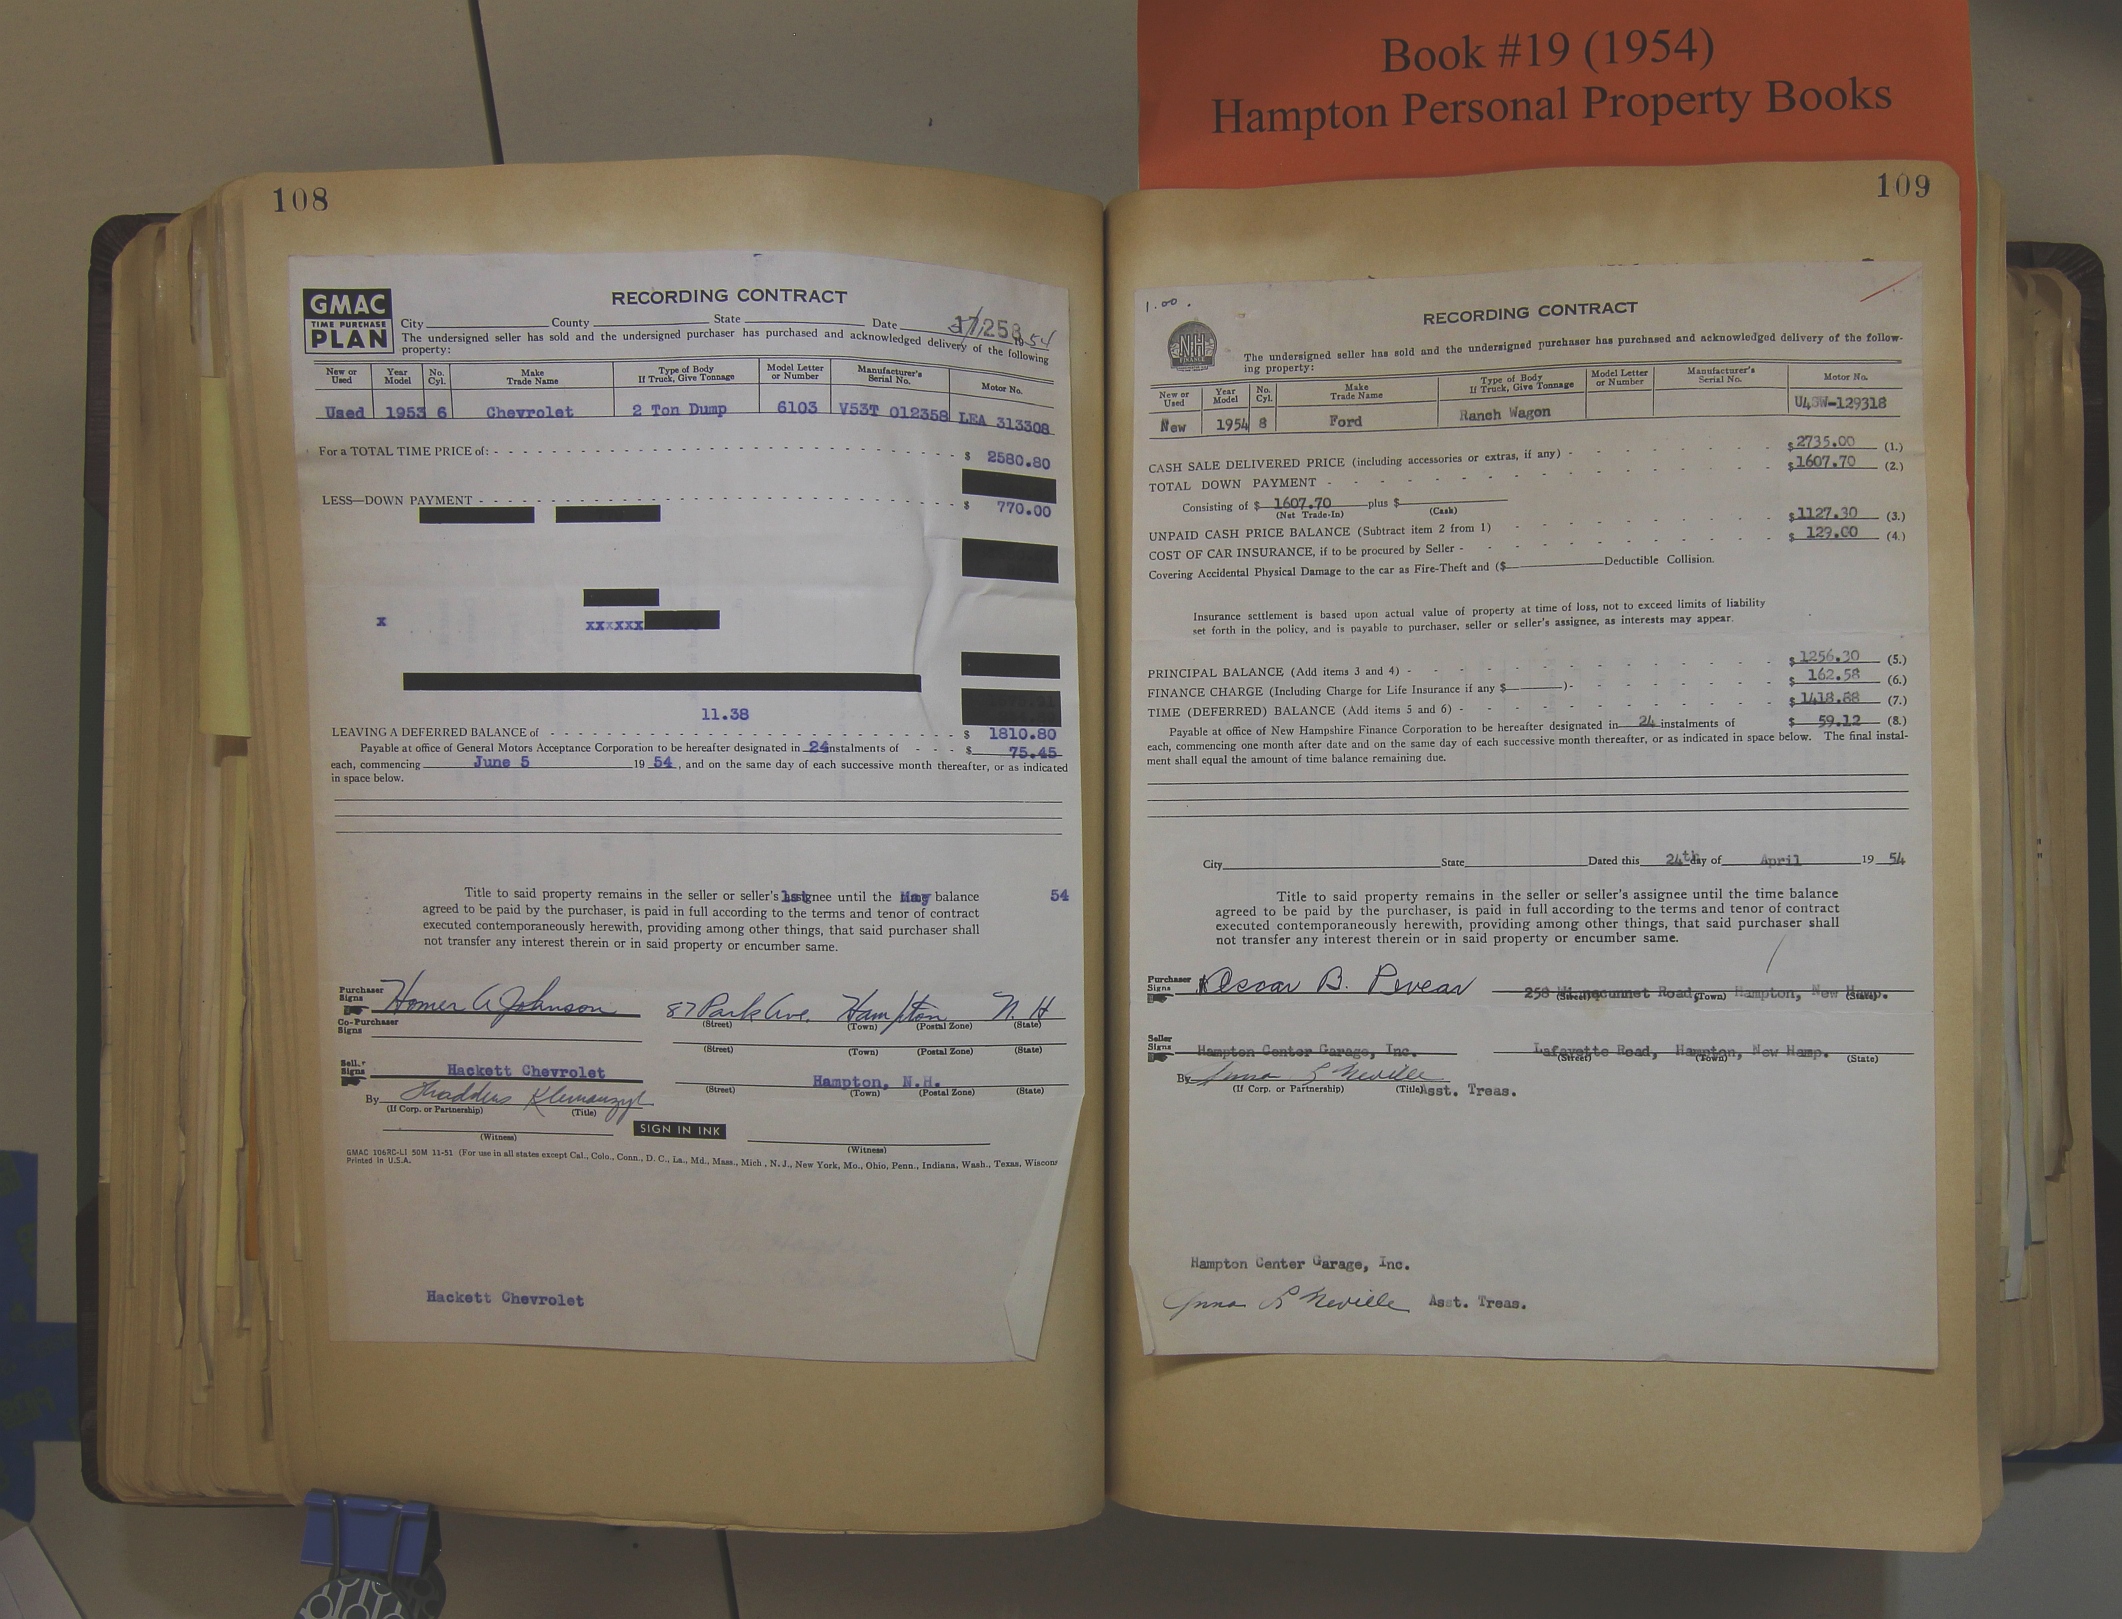 Book #19 (1954)
Hampton Personal Property Books
108
GMAC
TIME PURCHASE
PLAN
RECORDING CONTRACT
City County State Date 17,258 19 54
The undersigned seller has sold and the undersigned purchaser has purchased and acknowledged delivery of the following
property:
New or Used Year Model No. Cyl. Make Trade Name Type of Body If Truck, Give Tonnage Model Letter or Number Manufacturer's Serial No. Motor No.
Used 1953 6 Chevrolet 2 Ton Dump 6103 V53T 012358 LEA 313308
For a TOTAL TIME PRICE of: $ 2580.80
LESS—DOWN PAYMENT $ 770.00
x xxxxxx
11.38
LEAVING A DEFERRED BALANCE of $ 1810.80
Payable at office of General Motors Acceptance Corporation to be hereafter designated in 24 instalments of $ 75.45
each, commencing June 5 19 54, and on the same day of each successive month thereafter, or as indicated
in space below.
Title to said property remains in the seller or seller's assignee until the May balance 54
agreed to be paid by the purchaser, is paid in full according to the terms and tenor of contract
executed contemporaneously herewith, providing among other things, that said purchaser shall
not transfer any interest therein or in said property or encumber same.
Purchaser Signs Homer A Johnson 87 Park Ave. Hampton N. H
(Street) (Town) (Postal Zone) (State)
Co-Purchaser Signs
(Street) (Town) (Postal Zone) (State)
Seller Signs Hackett Chevrolet Hampton, N.H.
(Street) (Town) (Postal Zone) (State)
By Thaddeus
(If Corp. or Partnership) (Title)
(Witness) SIGN IN INK (Witness)
GMAC 106RC-LI 50M 11-51 (For use in all states except Cal., Colo., Conn., D. C., La., Md., Mass., Mich., N. J., New York, Mo., Ohio, Penn., Indiana, Wash., Texas, Wiscon
Printed in U.S.A.
Hackett Chevrolet
109
1.00
NH
FINANCE
RECORDING CONTRACT
The undersigned seller has sold and the undersigned purchaser has purchased and acknowledged delivery of the follow-
ing property:
New or Used Year Model No. Cyl. Make Trade Name Type of Body If Truck, Give Tonnage Model Letter or Number Manufacturer's Serial No. Motor No.
New 1954 8 Ford Ranch Wagon U4SW-129318
CASH SALE DELIVERED PRICE (including accessories or extras, if any) $ 2735.00 (1.)
TOTAL DOWN PAYMENT $ 1607.70 (2.)
Consisting of $ 1607.70 plus $
(Net Trade-In) (Cash)
UNPAID CASH PRICE BALANCE (Subtract item 2 from 1) $ 1127.30 (3.)
COST OF CAR INSURANCE, if to be procured by Seller $ 129.00 (4.)
Covering Accidental Physical Damage to the car as Fire-Theft and ($ Deductible Collision.
Insurance settlement is based upon actual value of property at time of loss, not to exceed limits of liability
set forth in the policy, and is payable to purchaser, seller or seller's assignee, as interests may appear.
PRINCIPAL BALANCE (Add items 3 and 4) $ 1256.30 (5.)
FINANCE CHARGE (Including Charge for Life Insurance if any $ ) $ 162.58 (6.)
TIME (DEFERRED) BALANCE (Add items 5 and 6) $ 1418.88 (7.)
Payable at office of New Hampshire Finance Corporation to be hereafter designated in 24 instalments of $ 59.12 (8.)
each, commencing one month after date and on the same day of each successive month thereafter, or as indicated in space below. The final instal-
ment shall equal the amount of time balance remaining due.
City State Dated this 24th day of April 19 54
Title to said property remains in the seller or seller's assignee until the time balance
agreed to be paid by the purchaser, is paid in full according to the terms and tenor of contract
executed contemporaneously herewith, providing among other things, that said purchaser shall
not transfer any interest therein or in said property or encumber same.
Purchaser Signs x Oscar B. Pevear 258 Winnacunnet Road, Hampton, New Hamp.
(Street) (Town) (State)
Seller Signs Hampton Center Garage, Inc. Lafayette Road, Hampton, New Hamp.
(Street) (Town) (State)
By Anna L Neville
(If Corp. or Partnership) (Title) Asst. Treas.
Hampton Center Garage, Inc.
Anna L Neville Asst. Treas.